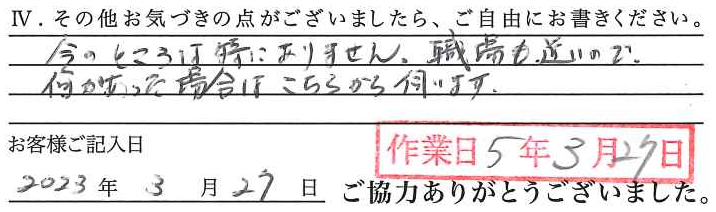 Ⅳ．その他お気づきの点がございましたら、ご自由にお書きください。
今のところは特にありません。職場も近いので、
何かあった場合はこちらから伺います。
お客様ご記入日
作業日 5年3月27日
2023年 3月27日 ご協力ありがとうございました。